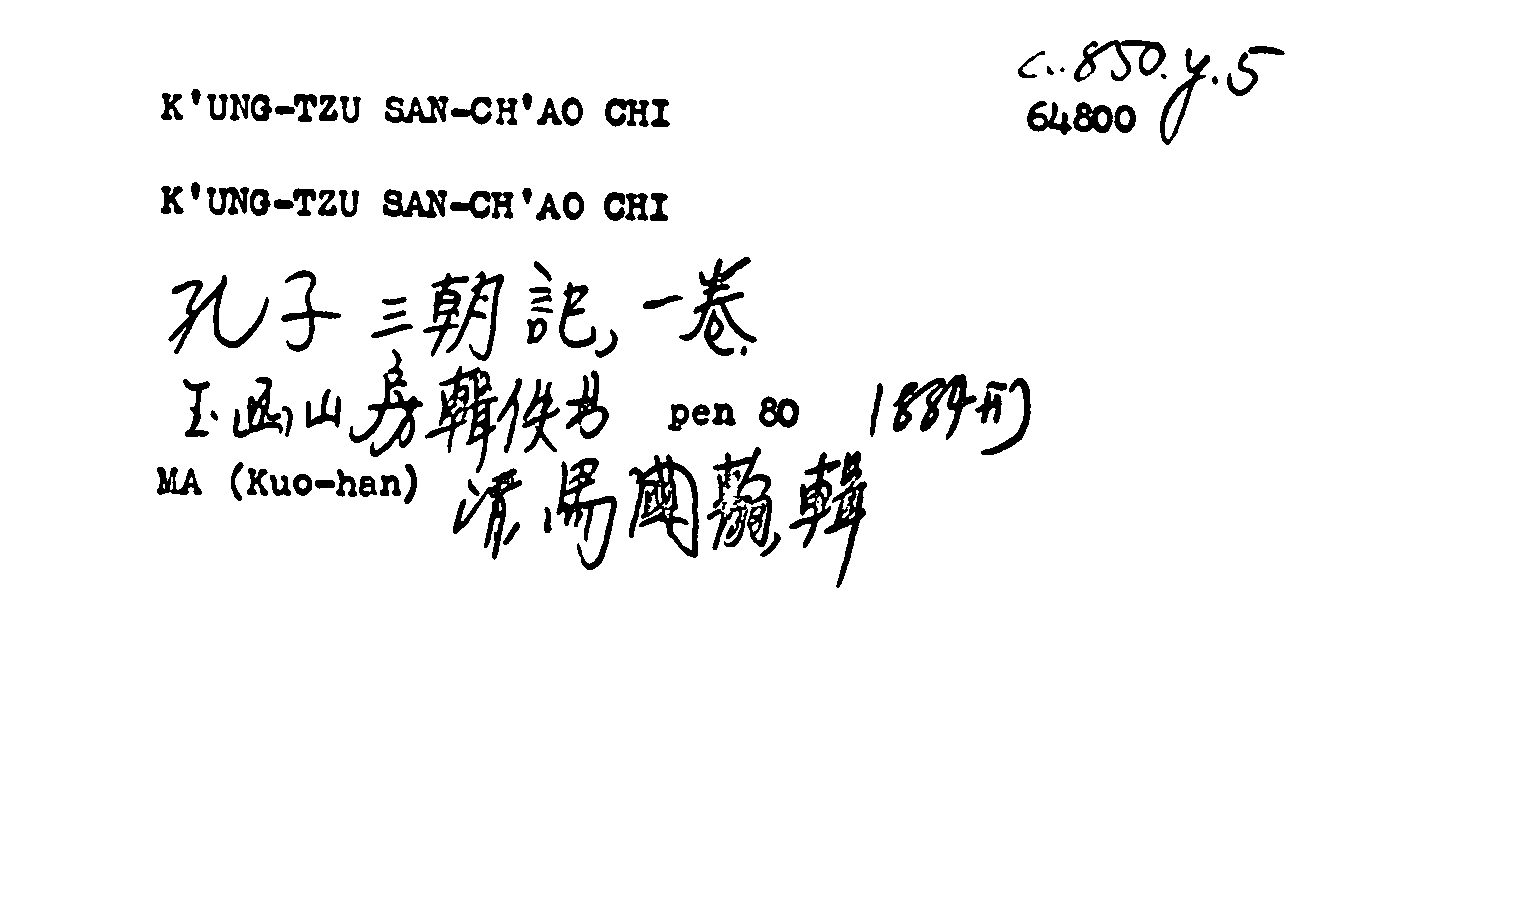 c..850.y.5
K'UNG-TZU SAN-CH'AO CHI
64800
K'UNG-TZU SAN-CH'AO CHI
孔子三朝記, 一卷.
玉函山房輯佚書 pen 80 1884刊
MA (Kuo-han) 清馬國翰輯